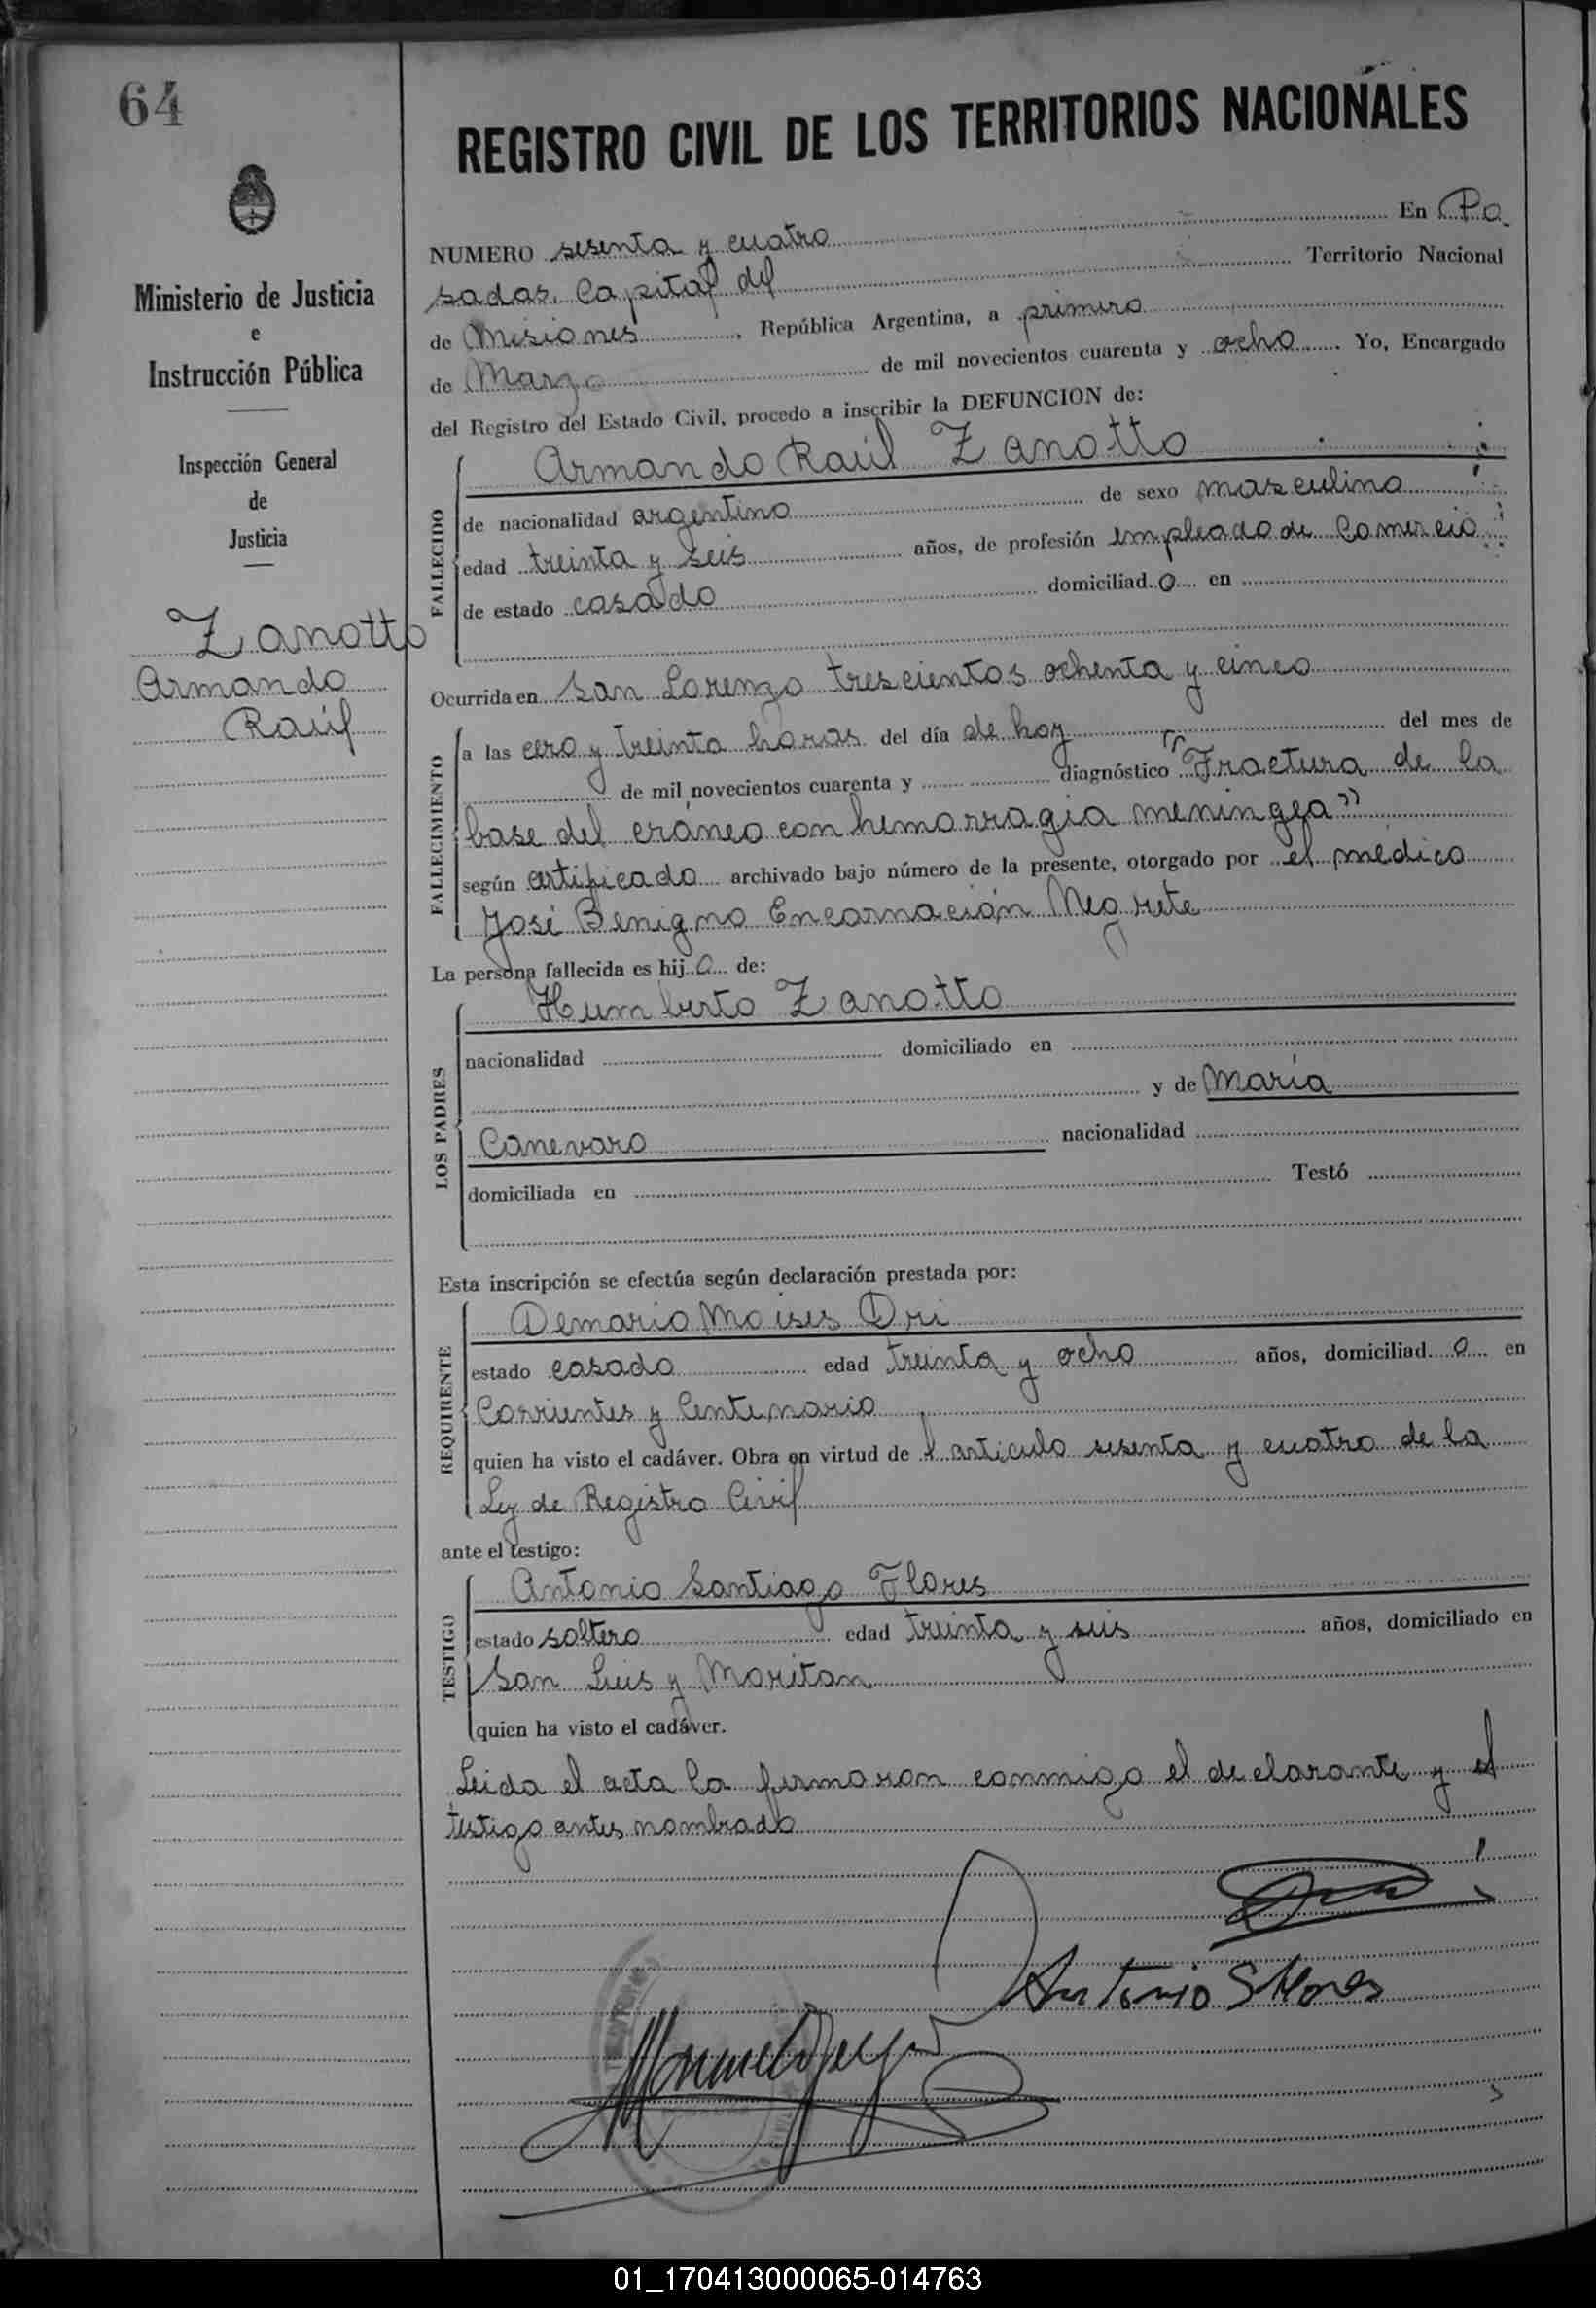 64
Ministerio de Justicia
e
Instrucción Pública
Inspección General
de
Justicia
Zanotto
Armando
Raúl
REGISTRO CIVIL DE LOS TERRITORIOS NACIONALES
NUMERO sesenta y cuatro En Po
sadas, Capital del Territorio Nacional
de Misiones, República Argentina, a primero
de Marzo de mil novecientos cuarenta y ocho. Yo, Encargado
del Registro del Estado Civil, procedo a inscribir la DEFUNCION de:
FALLECIDO
Armando Raúl Zanotto
de nacionalidad argentino de sexo masculino
edad treinta y seis años, de profesión empleado de Comercio
de estado casado domiciliad o en
Ocurrida en San Lorenzo trescientos ochenta y cinco
FALLECIMIENTO
a las cero y treinta horas del día de hoy del mes de
de mil novecientos cuarenta y diagnóstico "Fractura de la
base del cráneo con hemorragia meningea"
según certificado archivado bajo número de la presente, otorgado por el médico
José Benigno Encarnación Negrete
La persona fallecida es hij o de:
LOS PADRES
Humberto Zanotto
nacionalidad domiciliado en
y de María
Canevaro nacionalidad
domiciliada en Testó
Esta inscripción se efectúa según declaración prestada por:
REQUIRENTE
Demario Moises Dri
estado casado edad treinta y ocho años, domiciliad o en
Corrientes y Centenario
quien ha visto el cadáver. Obra en virtud de l articulo sesenta y cuatro de la
Ley de Registro Civil
ante el testigo:
TESTIGO
Antonio Santiago Flores
estado soltero edad treinta y seis años, domiciliado en
San Luis y Moritan
quien ha visto el cadáver.
Leida el acta la firmaron conmigo el declarante y el
testigo antes nombrado
Antonio S Flores
01_170413000065-014763